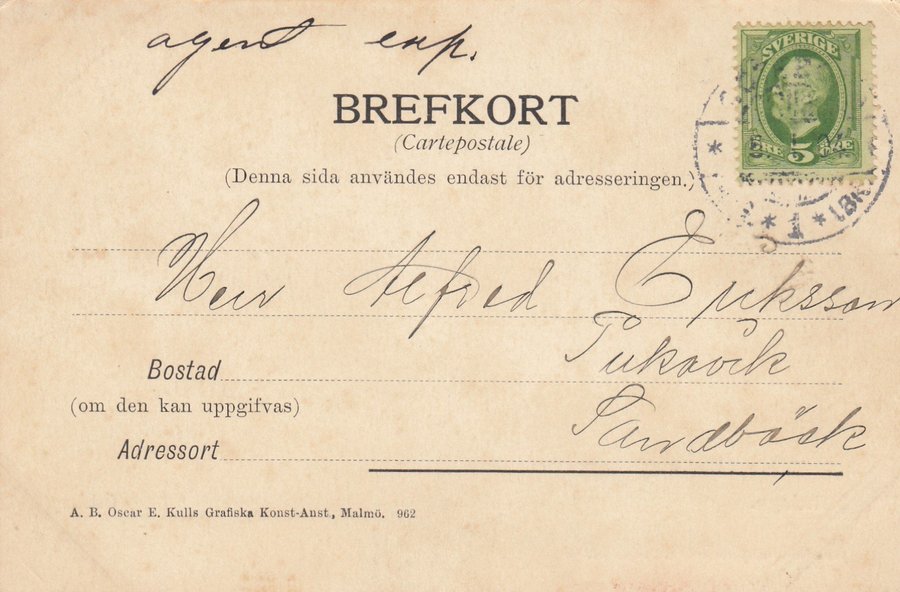 agent exp.
SVERIGE
ÖRE 5 ÖRE
BREFKORT
(Cartepostale)
(Denna sida användes endast för adresseringen.)
1
Herr Alfred Eriksson
Pukavik
Bostad
(om den kan uppgifvas)
Sandbäck
Adressort
A. B. Oscar E. Kulls Grafiska Konst-Anst., Malmö. 962